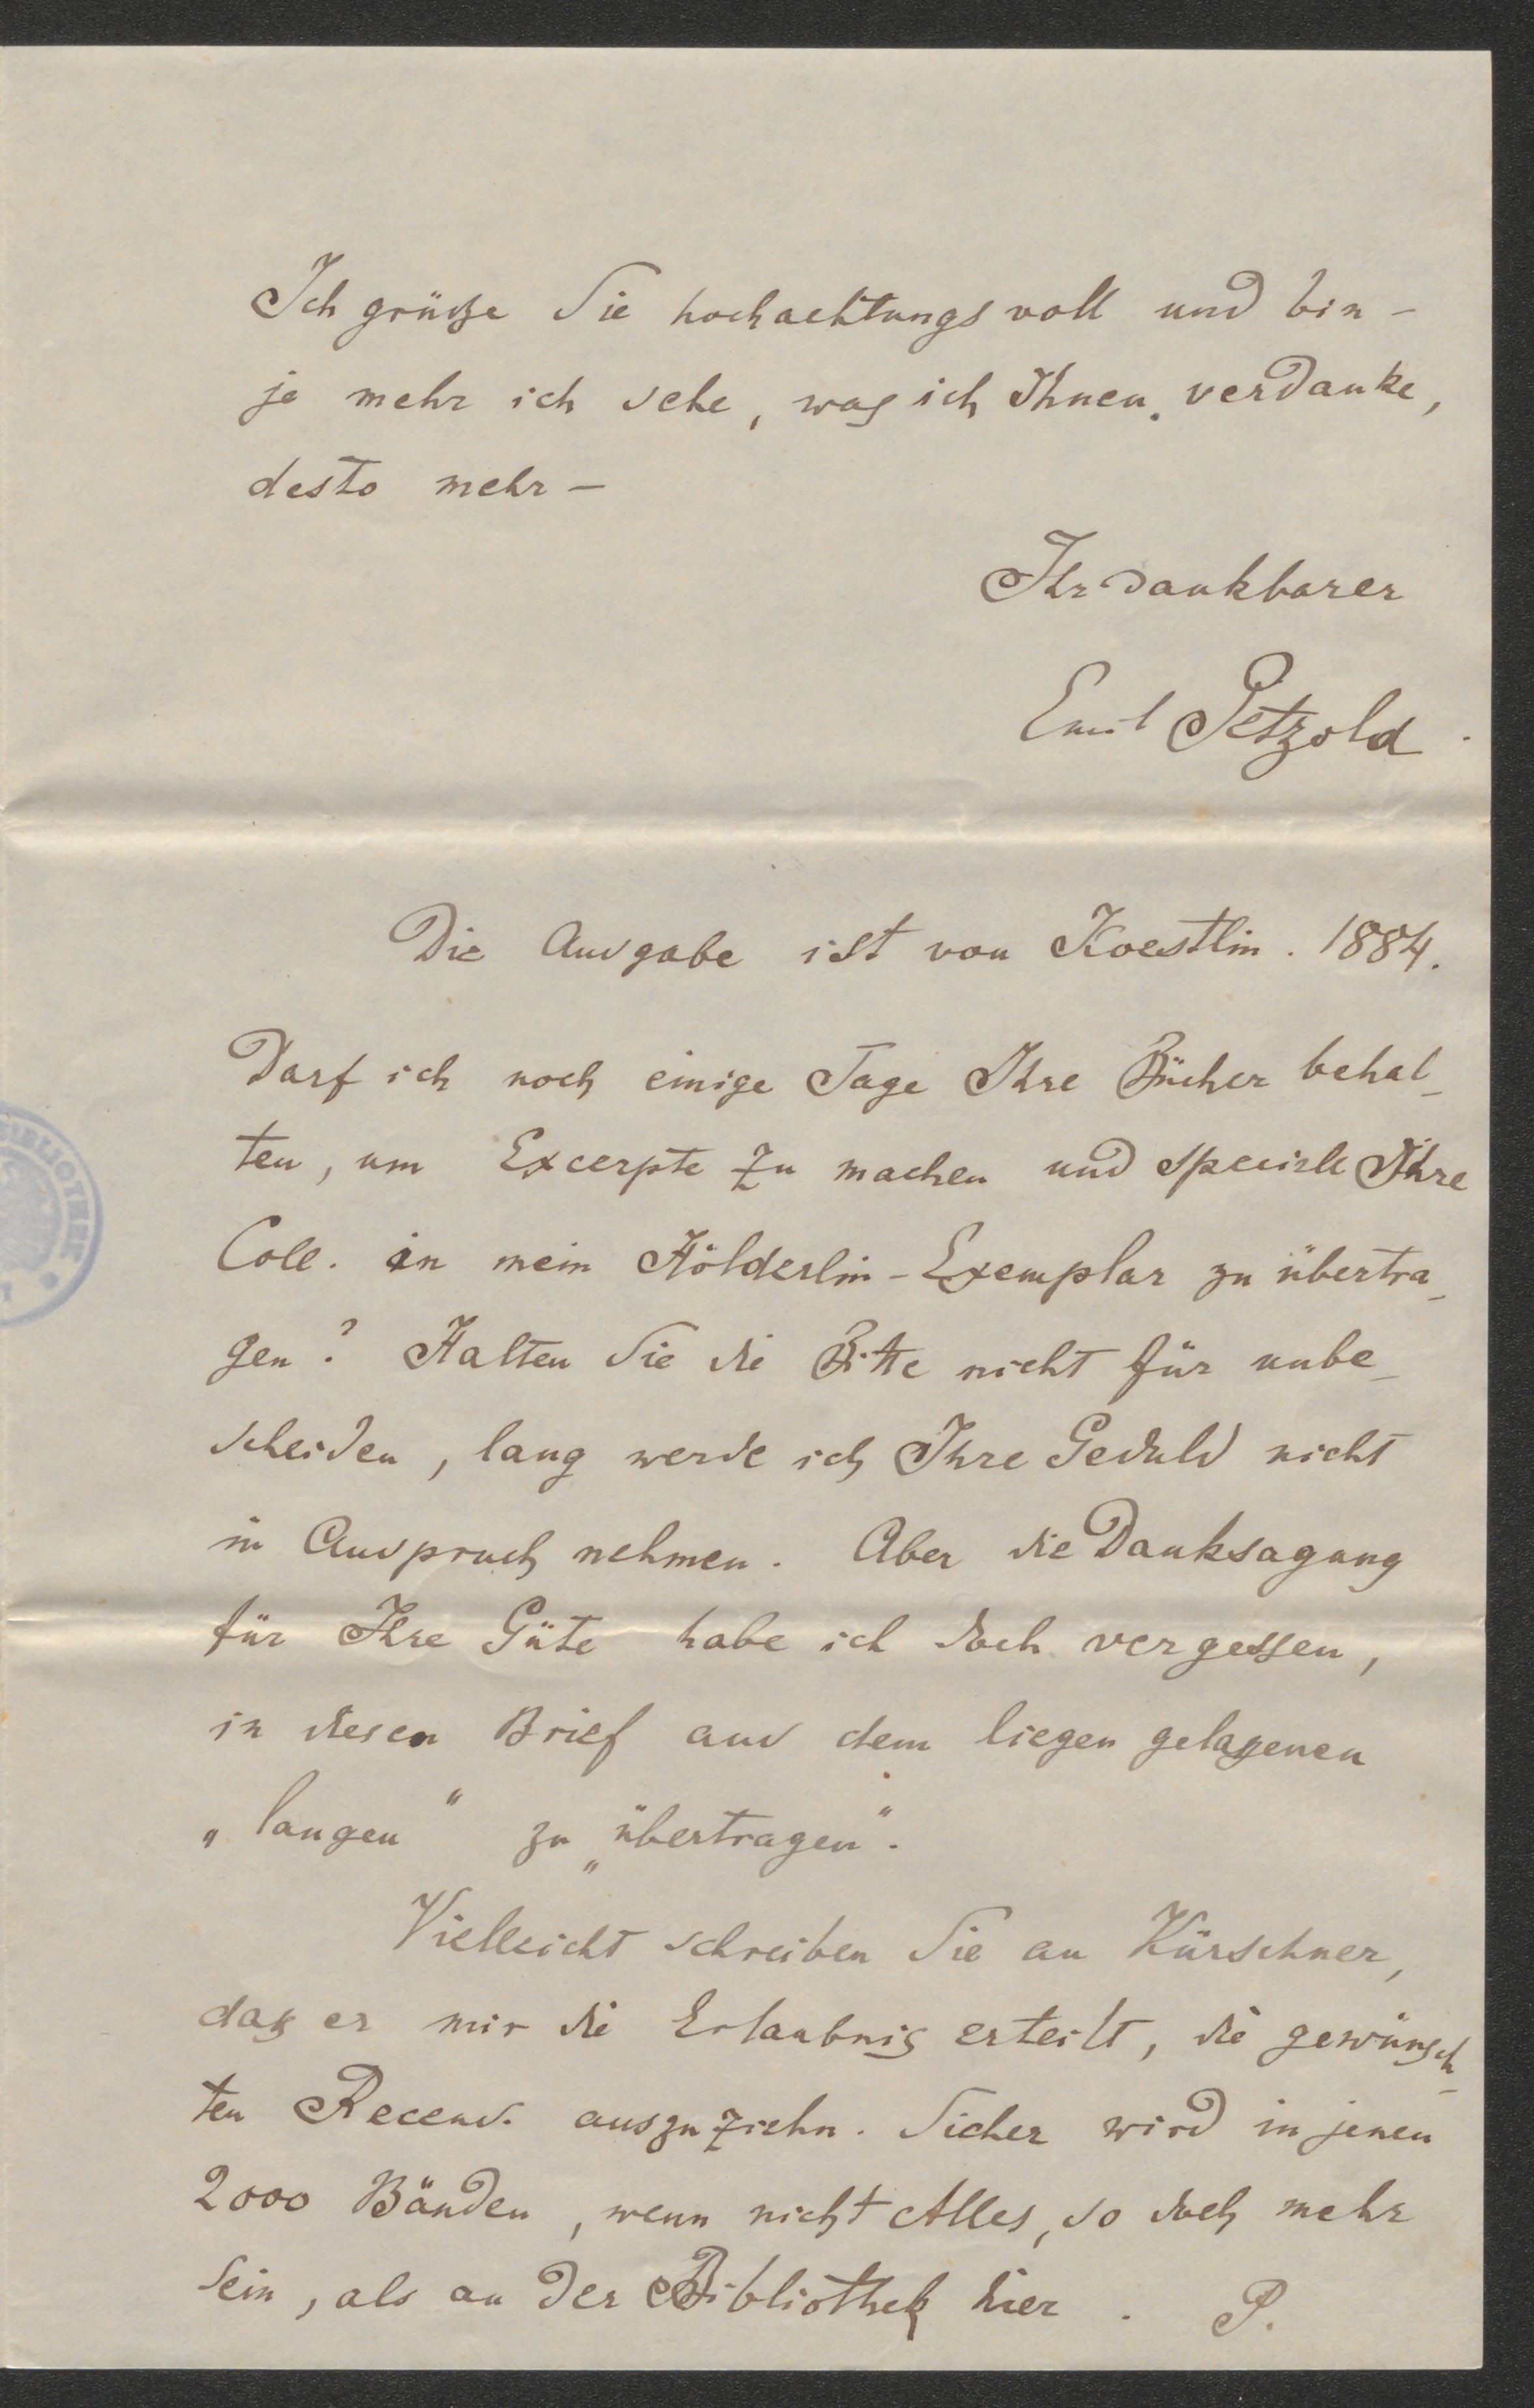 Ich grüße Sie hochachtungsvoll und bin –
je mehr ich sehe, was ich Ihnen verdanke,
desto mehr –
Ihr dankbarer
Emil Petzold.
Die Ausgabe ist von Koestlin. 1884.
Darf ich noch einige Tage Ihre Bücher behal-
ten, um Excerpte zu machen und speciell Ihre
Coll. in mein Hölderlin-Exemplar zu übertra-
gen? Halten Sie die Bitte nicht für unbe-
scheiden, lang werde ich Ihre Geduld nicht
in Anspruch nehmen. Aber die Danksagung
für Ihre Güte habe ich doch vergessen,
in diesen Brief aus dem liegen gelaßenen
„langen“ zu „übertragen“.
Vielleicht schreiben Sie an Kürschner,
daß er mir die Erlaubnis erteilt, die gewünsch-
ten Recens. auszuziehn. Sicher wird in jenen
2000 Bänden, wenn nicht Alles, so doch mehr
sein, als an der Bibliothek hier. P.
BIBLIOTHEK